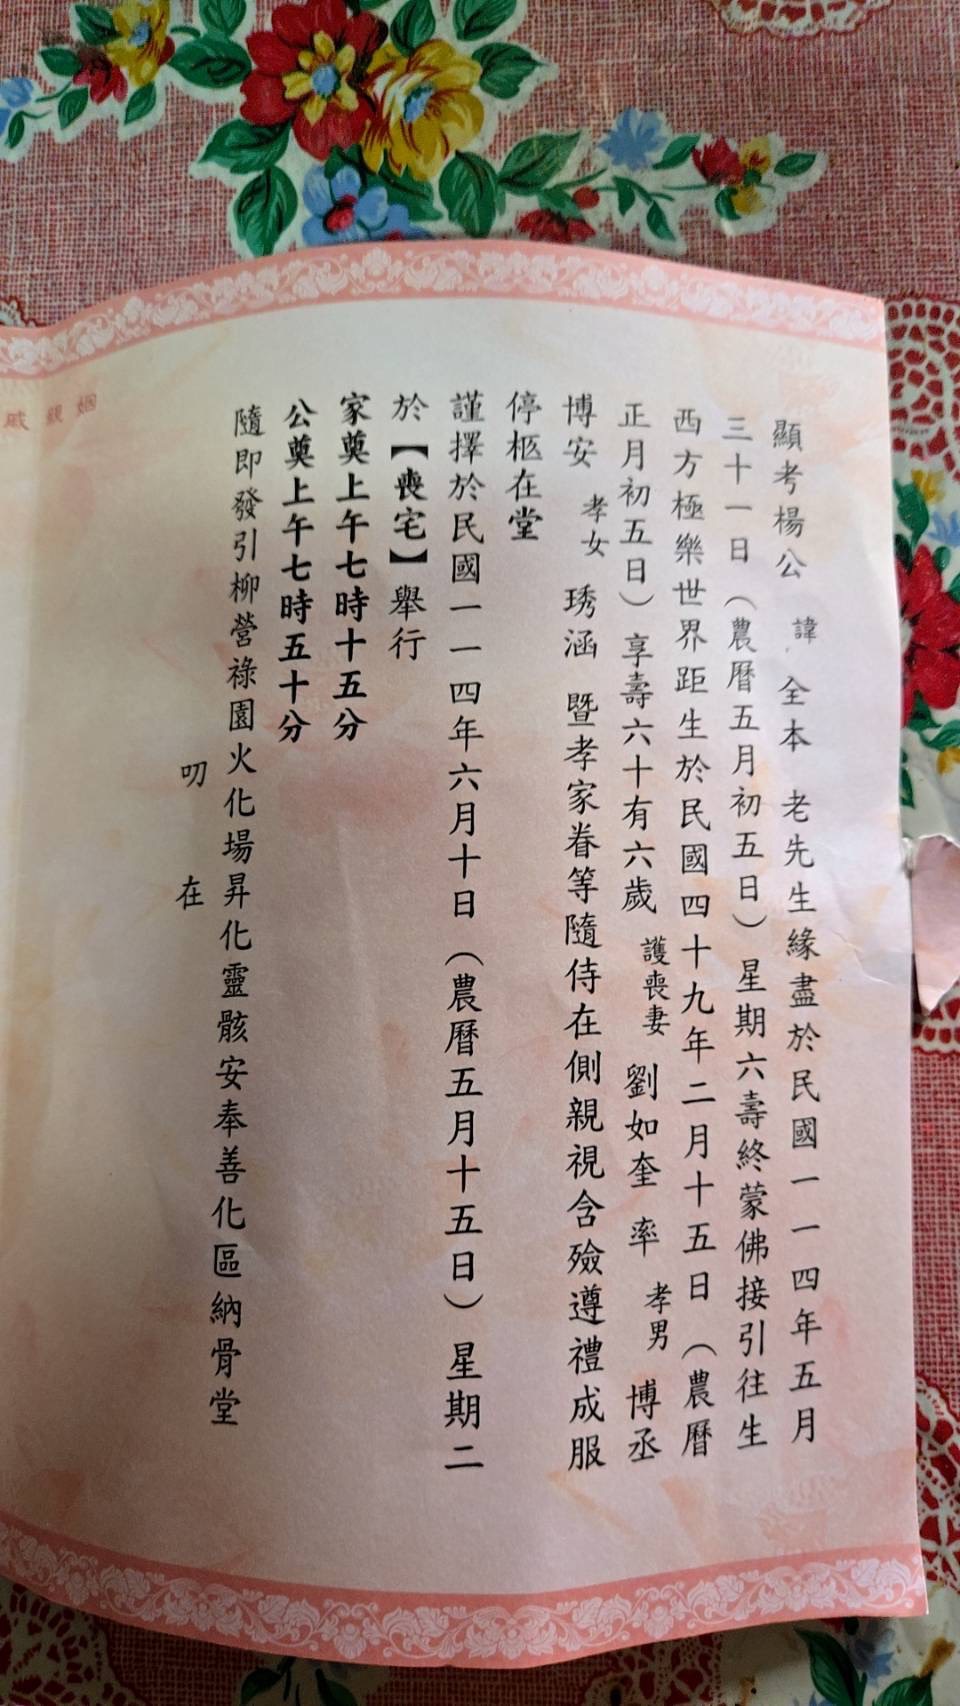 顯考楊公 諱 全本 老先生緣盡於民國一一四年五月
三十一日（農曆五月初五日）星期六壽終蒙佛接引往生
西方極樂世界距生於民國四十九年二月十五日（農曆
正月初五日）享壽六十有六歲 護喪妻 劉如奎 率 孝男 博丞
博安 孝女 琇涵 暨孝家眷等隨侍在側親視含殮遵禮成服
停柩在堂
謹擇於民國一一四年六月十日（農曆五月十五日）星期二
於【喪宅】舉行
家奠上午七時十五分
公奠上午七時五十分
隨即發引柳營祿園火化場昇化靈骸安奉善化區納骨堂
叨 在
姻親戚